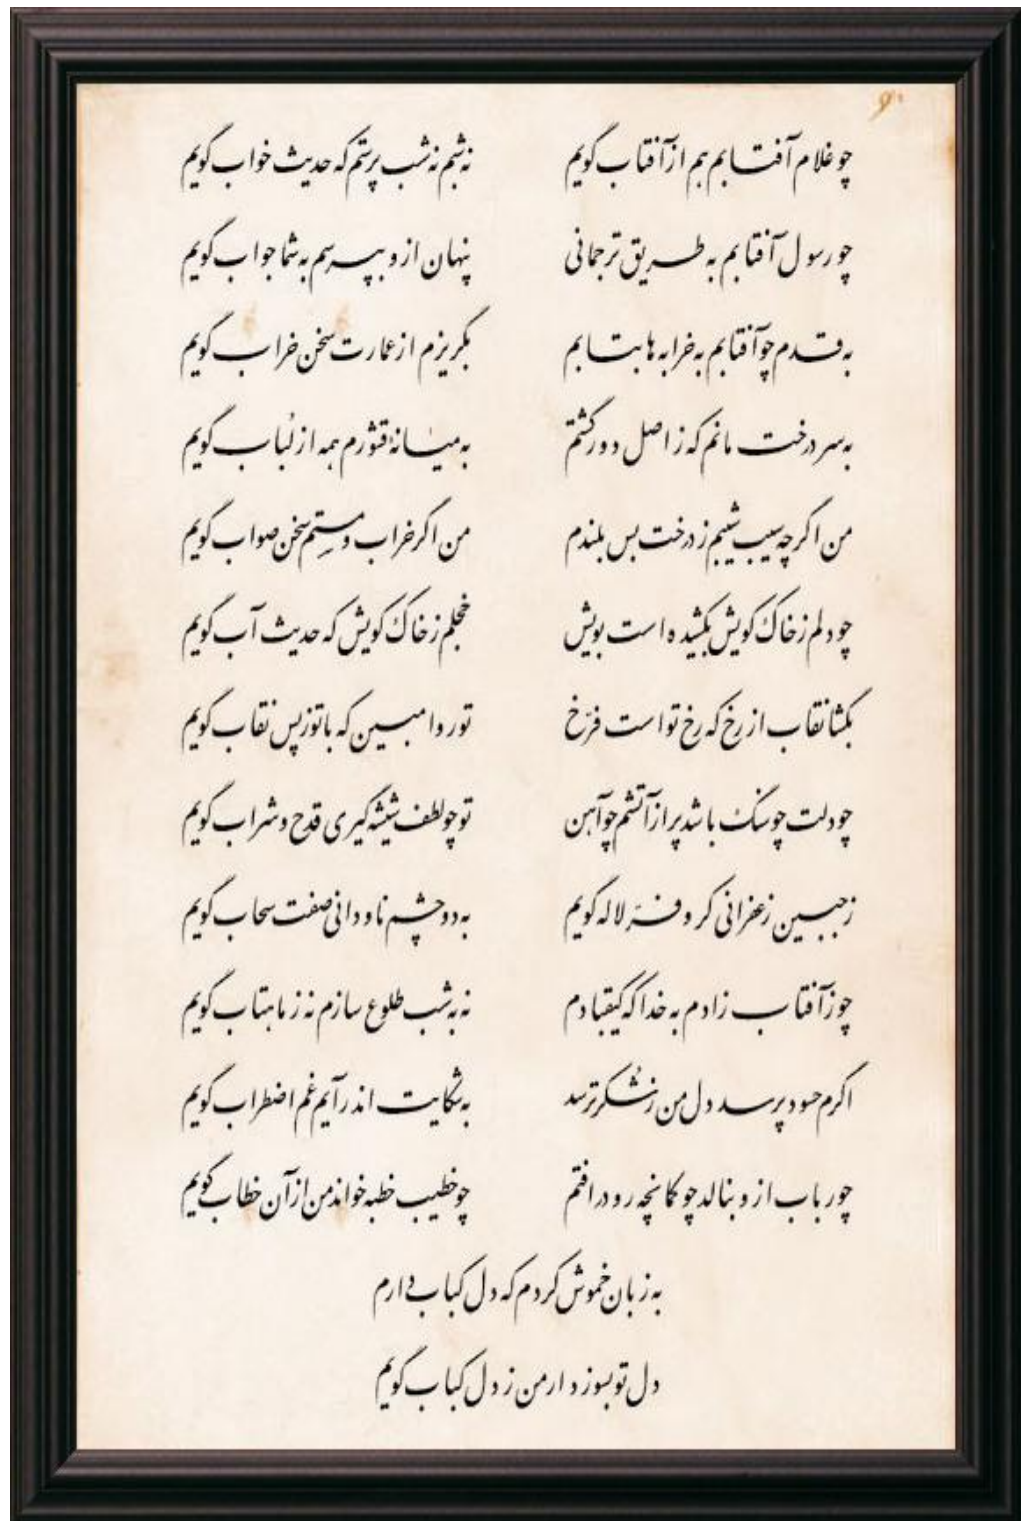 چو غلام آفتابم هم از آفتاب گویم نه شبم نه شب پرستم که حدیث خواب گویم
چو رسول آفتابم به طریق ترجمانی پنهان از و بپرسم به شما جواب گویم
به قدم چو آفتابم به خرابه ها بتابم بگریزم از عمارت سخن خراب گویم
به سر درخت مانم که ز اصل دور گشتم به میانهٔ قشورم همه از لُباب گویم
من اگر چه سیب شیبم ز درخت بس بلندم من اگر خراب و مستم سخن صواب گویم
چو دلم ز خاک کویش بکشیده است بویش خجلم ز خاک کویش که حدیث آب گویم
بگشا نقاب از رخ که رخ تو است فرّخ تو روا مبین که با تو ز پس نقاب گویم
چو دلت چو سنگ باشد پر از آتشم چو آهن تو چو لطف شیشه گیری قدح و شراب گویم
ز جبین زعفرانی کر و فرّ لاله گویم به دو چشم ناودانی صفت سحاب گویم
چو ز آفتاب زادم به خدا که کیقبادم نه به شب طلوع سازم نه ز ماهتاب گویم
اگرم حسود پرسد دل من ز شُکر ترسد به شکایت اندر آیم غم اضطراب گویم
چو رباب از و بنالد چو کمانچه رو در افتم چو خطیب خطبه خواند من از آن خطاب گویم
به زبان خموش کردم که دل کباب دارم
دل تو بسوزد ار من ز دل کباب گویم